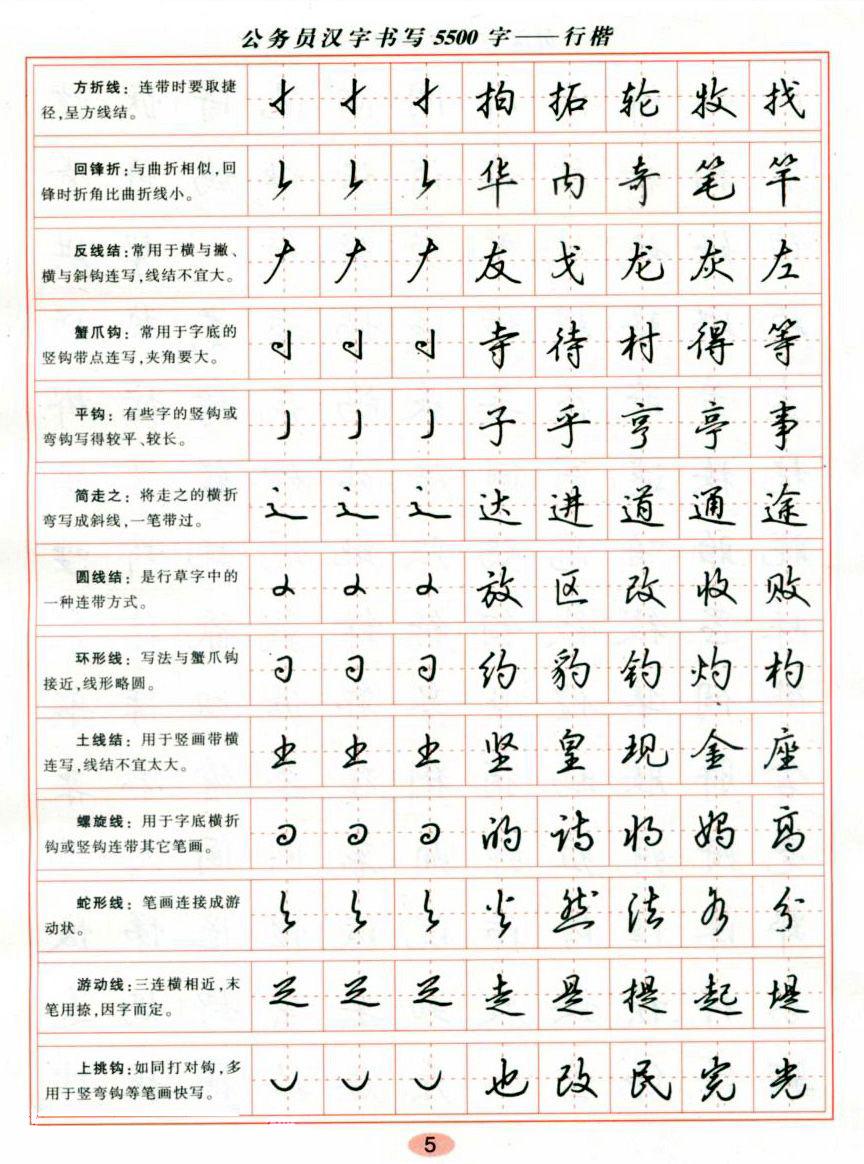 公务员汉字书写5500字——行楷
方折线：连带时要取捷
径，呈方线结。
拍 拓 轮 牧 找
回锋折：与曲折相似，回
锋时折角比曲折线小。
华 内 奇 笔 竿
反线结：常用于横与撇、
横与斜钩连写，线结不宜大。
友 戈 龙 灰 左
蟹爪钩：常用于字底的
竖钩带点连写，夹角要大。
寺 待 村 得 等
平钩：有些字的竖钩或
弯钩写得较平、较长。
子 乎 亨 亭 事
简走之：将走之的横折
弯写成斜线，一笔带过。
达 进 道 通 途
圆线结：是行草字中的
一种连带方式。
放 区 改 收 败
环形线：写法与蟹爪钩
接近，线形略圆。
约 豹 钓 灼 杓
土线结：用于竖画带横
连写，线结不宜太大。
坚 皇 现 金 座
螺旋线：用于字底横折
钩或竖钩连带其它笔画。
的 诗 将 妈 高
蛇形线：笔画连接成游
动状。
然 法 分
游动线：三连横相近，末
笔用捺，因字而定。
走 是 提 起 堤
上挑钩：如同打对钩，多
用于竖弯钩等笔画快写。
也 改 民 完 光
5